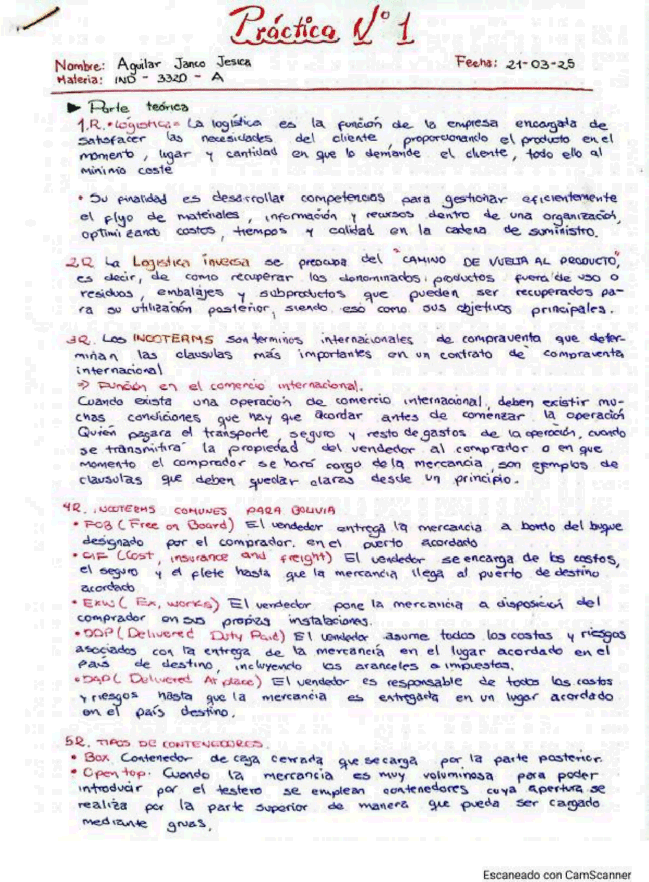 Práctica N° 1
Nombre: Aguilar Janco Jesica Fecha: 21-03-25
Materia: IND - 3320 - A
► Parte teórica
1.R. • Logística = La logística es la función de la empresa encargada de
satisfacer las necesidades del cliente, proporcionando el producto en el
momento, lugar y cantidad en que lo demande el cliente, todo ello al
mínimo coste
• Su finalidad es desarrollar competencias para gestionar eficientemente
el flujo de materiales, información y recursos dentro de una organización,
optimizando costos, tiempos y calidad en la cadena de suministro.
2R La Logística inversa se preocupa del "CAMINO DE VUELTA AL PRODUCTO",
es decir, de como recuperar los denominados productos fuera de uso o
residuos, embalajes y subproductos que pueden ser recuperados pa-
ra su utilización posterior, siendo eso como sus objetivos principales.
3R. Los INCOTERMS son terminos internacionales de compraventa que deter-
minan las clausulas más importantes en un contrato de compraventa
internacional
⇒ Función en el comercio internacional.
Cuando exista una operación de comercio internacional, deben existir mu-
chas condiciones que hay que acordar antes de comenzar la operación
Quién pagara el transporte, seguro y resto de gastos de la operación, cuando
se transmitirá la propiedad del vendedor al comprador o en que
momento el comprador se hará cargo de la mercancia, son ejemplos de
clausulas que deben quedar claras desde un principio.
4R. INCOTERMS COMUNES PARA BOLIVIA
• FOB (Free on Board) El vendeder entrega la mercancia a bordo del buque
designado por el comprador en el puerto acordado
• CIF (Cost, insurance and freight) El vendedor se encarga de los costos,
el seguro y el flete hasta que la mercancia llega al puerto de destino
acordado
• EXW (Ex, works) El vendedor pone la mercancia a disposición del
comprador en sus propias instalaciones.
• DDP (Delivered Duty Paid) El vendedor asume todos los costas y riesgos
asociados con la entrega de la mercancia en el lugar acordado en el
país de destino, incluyendo los aranceles a impuestos.
• DAP (Delivered At place) El vendedor es responsable de todos los costos
y riesgos hasta que la mercancia es entregada en un lugar acordado
en el país destino.
5R. TIPOS DE CONTENEDORES.
• Box. Contenedor de caja cerrada que se carga por la parte posterior.
• Open top. Cuando la mercancia es muy voluminosa para poder
introducir por el testero se emplean contenedores cuya apertura se
realiza por la parte superior de manera que pueda ser cargado
mediante gruas.
Escaneado con CamScanner